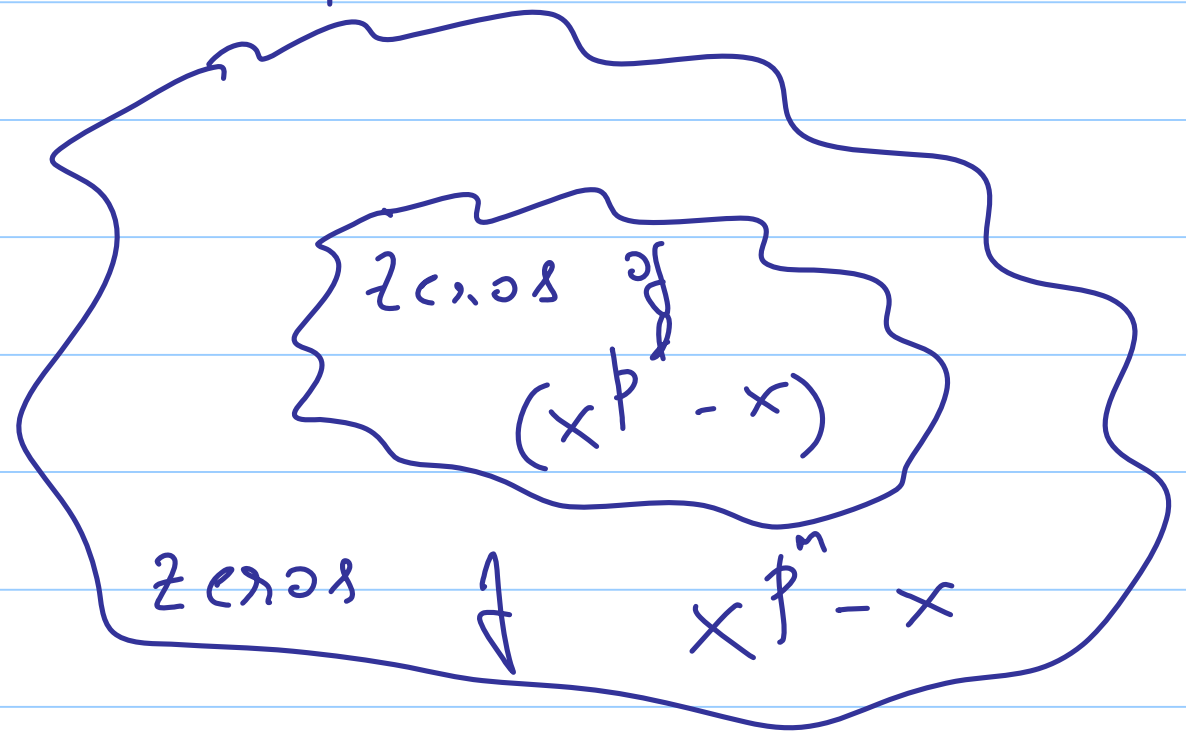 Zeros of
(x^p - x)
Zeros f x^{p^n} - x